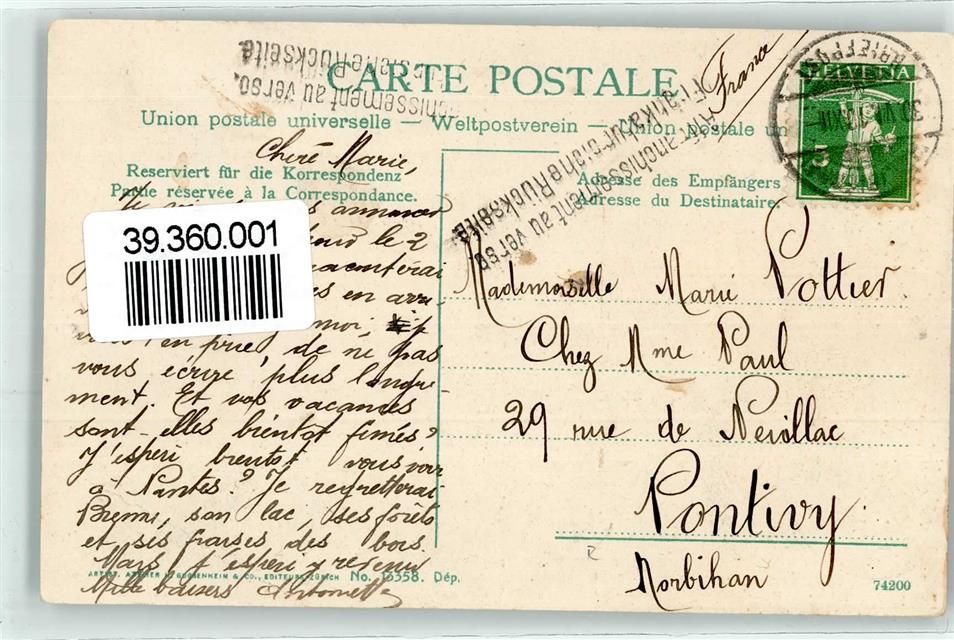 CARTE POSTALE.
Union postale universelle — Weltpostverein — Union postale un
Reserviert für die Korrespondenz
Partie réservée à la Correspondance.
Adresse des Empfängers
Adresse du Destinataire.
Affranchissement au verso.
Frankatur siehe Rückseite
chissement au verso.
siehe Rückseite
France
HELVETIA
5
BRIEFPOST
39.360.001
Cheré Marie,
annoncer
le 2
raconterai
en arri-
moi, je
vous en prie, de ne pas
vous écrire plus longue-
ment. Et vos vacances
sont-elles bientôt finies?
J'espère bientôt vous voir
à Nantes? Je regretterai
son lac, ses forêts
et ses fraises des bois.
Mais j'espère y revenir
Mille baisers Antoinette
Mademoiselle Marie Pottier.
Chez Mme Paul
29 rue de
Pontivy.
Morbihan
ARTIST. ATELIER H. GUGGENHEIM & CO., EDITEURS, ZÜRICH No. 13358. Dép.
74200